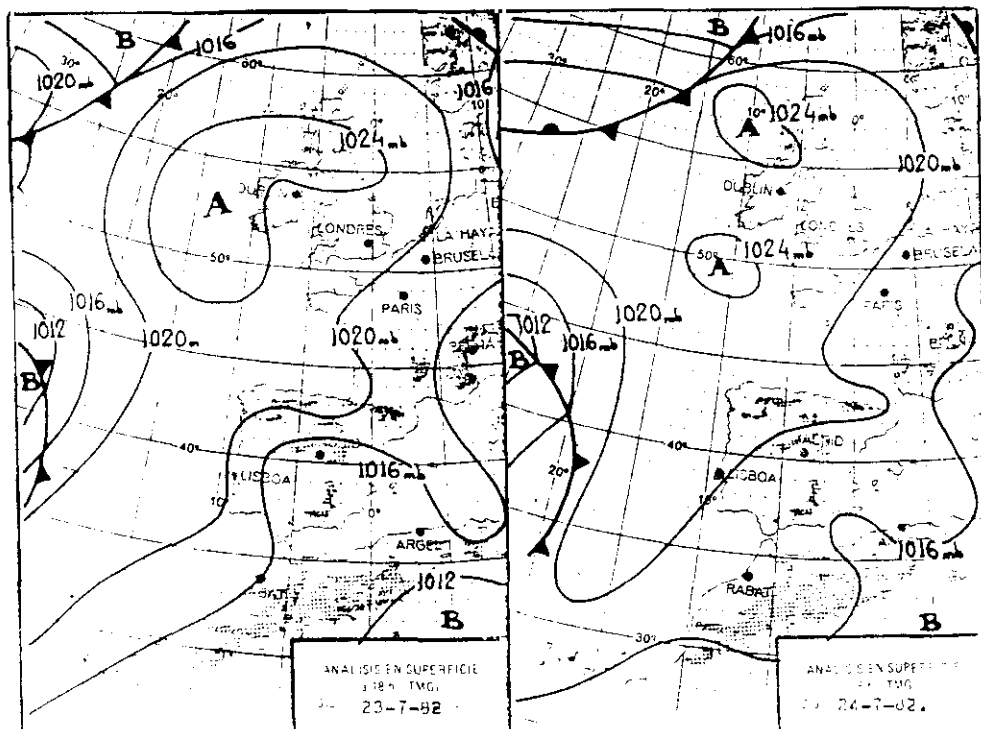 B
1016
30°
1020 mb
20°
60°
1016
10°
0°
1024 mb
DUBLIN
A
LONDRES
LA HAYA
BRUSELA
50°
PARIS
1016 mb
1012
1020 m
1020 mb
B
40°
LISBOA
1016 mb
10°
0°
ARGEL
1012
B
ANALISIS EN SUPERFICIE
a 18 h. TMG.
23-7-82
B
1016 mb
30°
60°
20°
10°
1024 mb
A
0°
10°
1020 mb
DUBLIN
LONDRES
LA HAYA
50°
1024 mb
BRUSELA
A
PARIS
1020 mb
1012
1016 mb
B
40°
MADRID
20°
LISBOA
10°
1016 mb
RABAT
30°
B
ANALISIS EN SUPERFICIE
TMG
24-7-82.